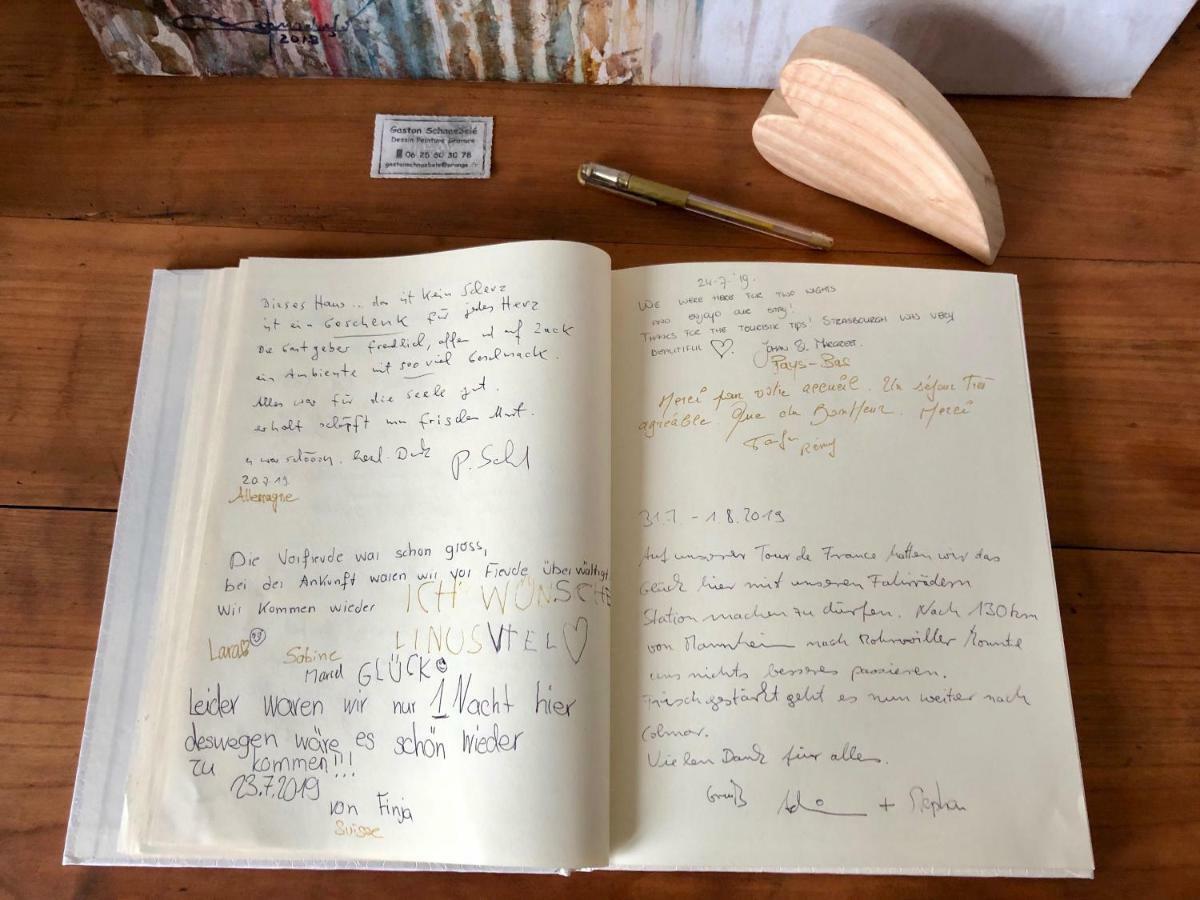 2018
Gaston Schnaebelé
Dessin Peinture Gravure
06 25 60 30 78
Dieses Haus .. das ist kein Scherz
ist ein Geschenk für jedes Herz
Die Gastgeber freundlich, offen und auf Zack
ein Ambiente mit sooo viel Geschmack.
Alles war für die Seele gut.
erholt schöpft man frischen Mut.
es war schöön. herzl. Dank
20.7.19
Allemagne
Die Vorfreude war schon gross,
bei der Ankunft waren wir vor Freude überwältigt
Wir kommen wieder
ICH WÜNSCHE
LINUS VIEL ♡
GLÜCK
Lara
Sabine
Marcel
Leider waren wir nur 1 Nacht hier
deswegen wäre es schön wieder
zu kommen!!!
23.7.2019
von Finja
Suisse
24-7-'19.
WE WERE HERE FOR TWO NIGHTS
AND ENJOYD OUR STAY!
THANKS FOR THE TOURISTIK TIPS! STRASBOURG WAS VERY
BEAUTIFUL ♡. JOHAN & MARGREET.
Pays-Bas
Merci pour votre accueil. Un séjour Très
agréable. Que du Bonheur. Merci
Rémy
31.7. - 1.8.2019
Auf unserer Tour de France hatten wir das
Glück hier mit unseren Fahrrädern
Station machen zu dürfen. Nach 130 km
von Mannheim nach Rohrwiller konnte
uns nichts besseres passieren.
Frisch gestärkt geht es nun weiter nach
Colmar.
Vielen Dank für alles.
Gruß + Stephan